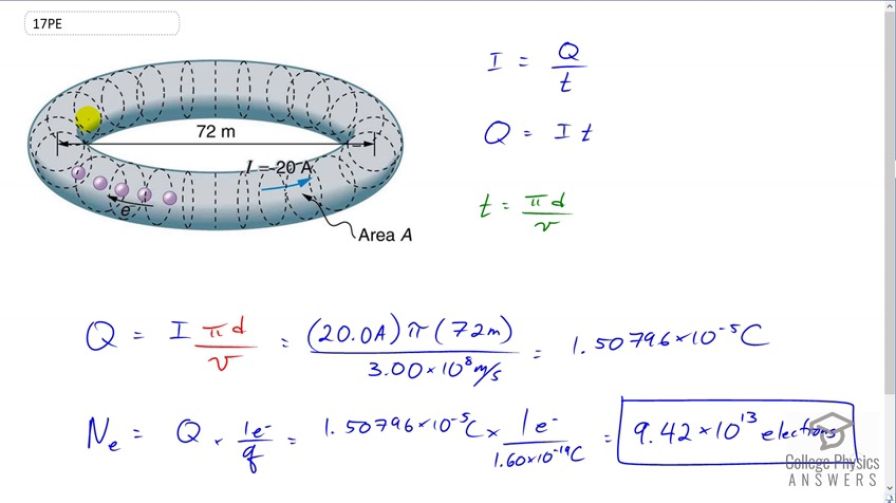 17PE
I = Q/t
72 m
Q = I t
I = 20 A
t = πd/v
e
Area A
Q = I πd/v = (20.0A) π (72m) / 3.00×10⁸ m/s = 1.50796×10⁻⁵ C
Nₑ = Q × 1e⁻/q = 1.50796×10⁻⁵ C × 1e⁻/1.60×10⁻¹⁹C = 9.42×10¹³ electrons
College Physics
ANSWERS